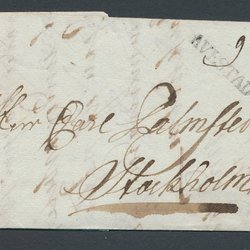 AVESTAD
9
Herr Carl Palmste
Stockholm